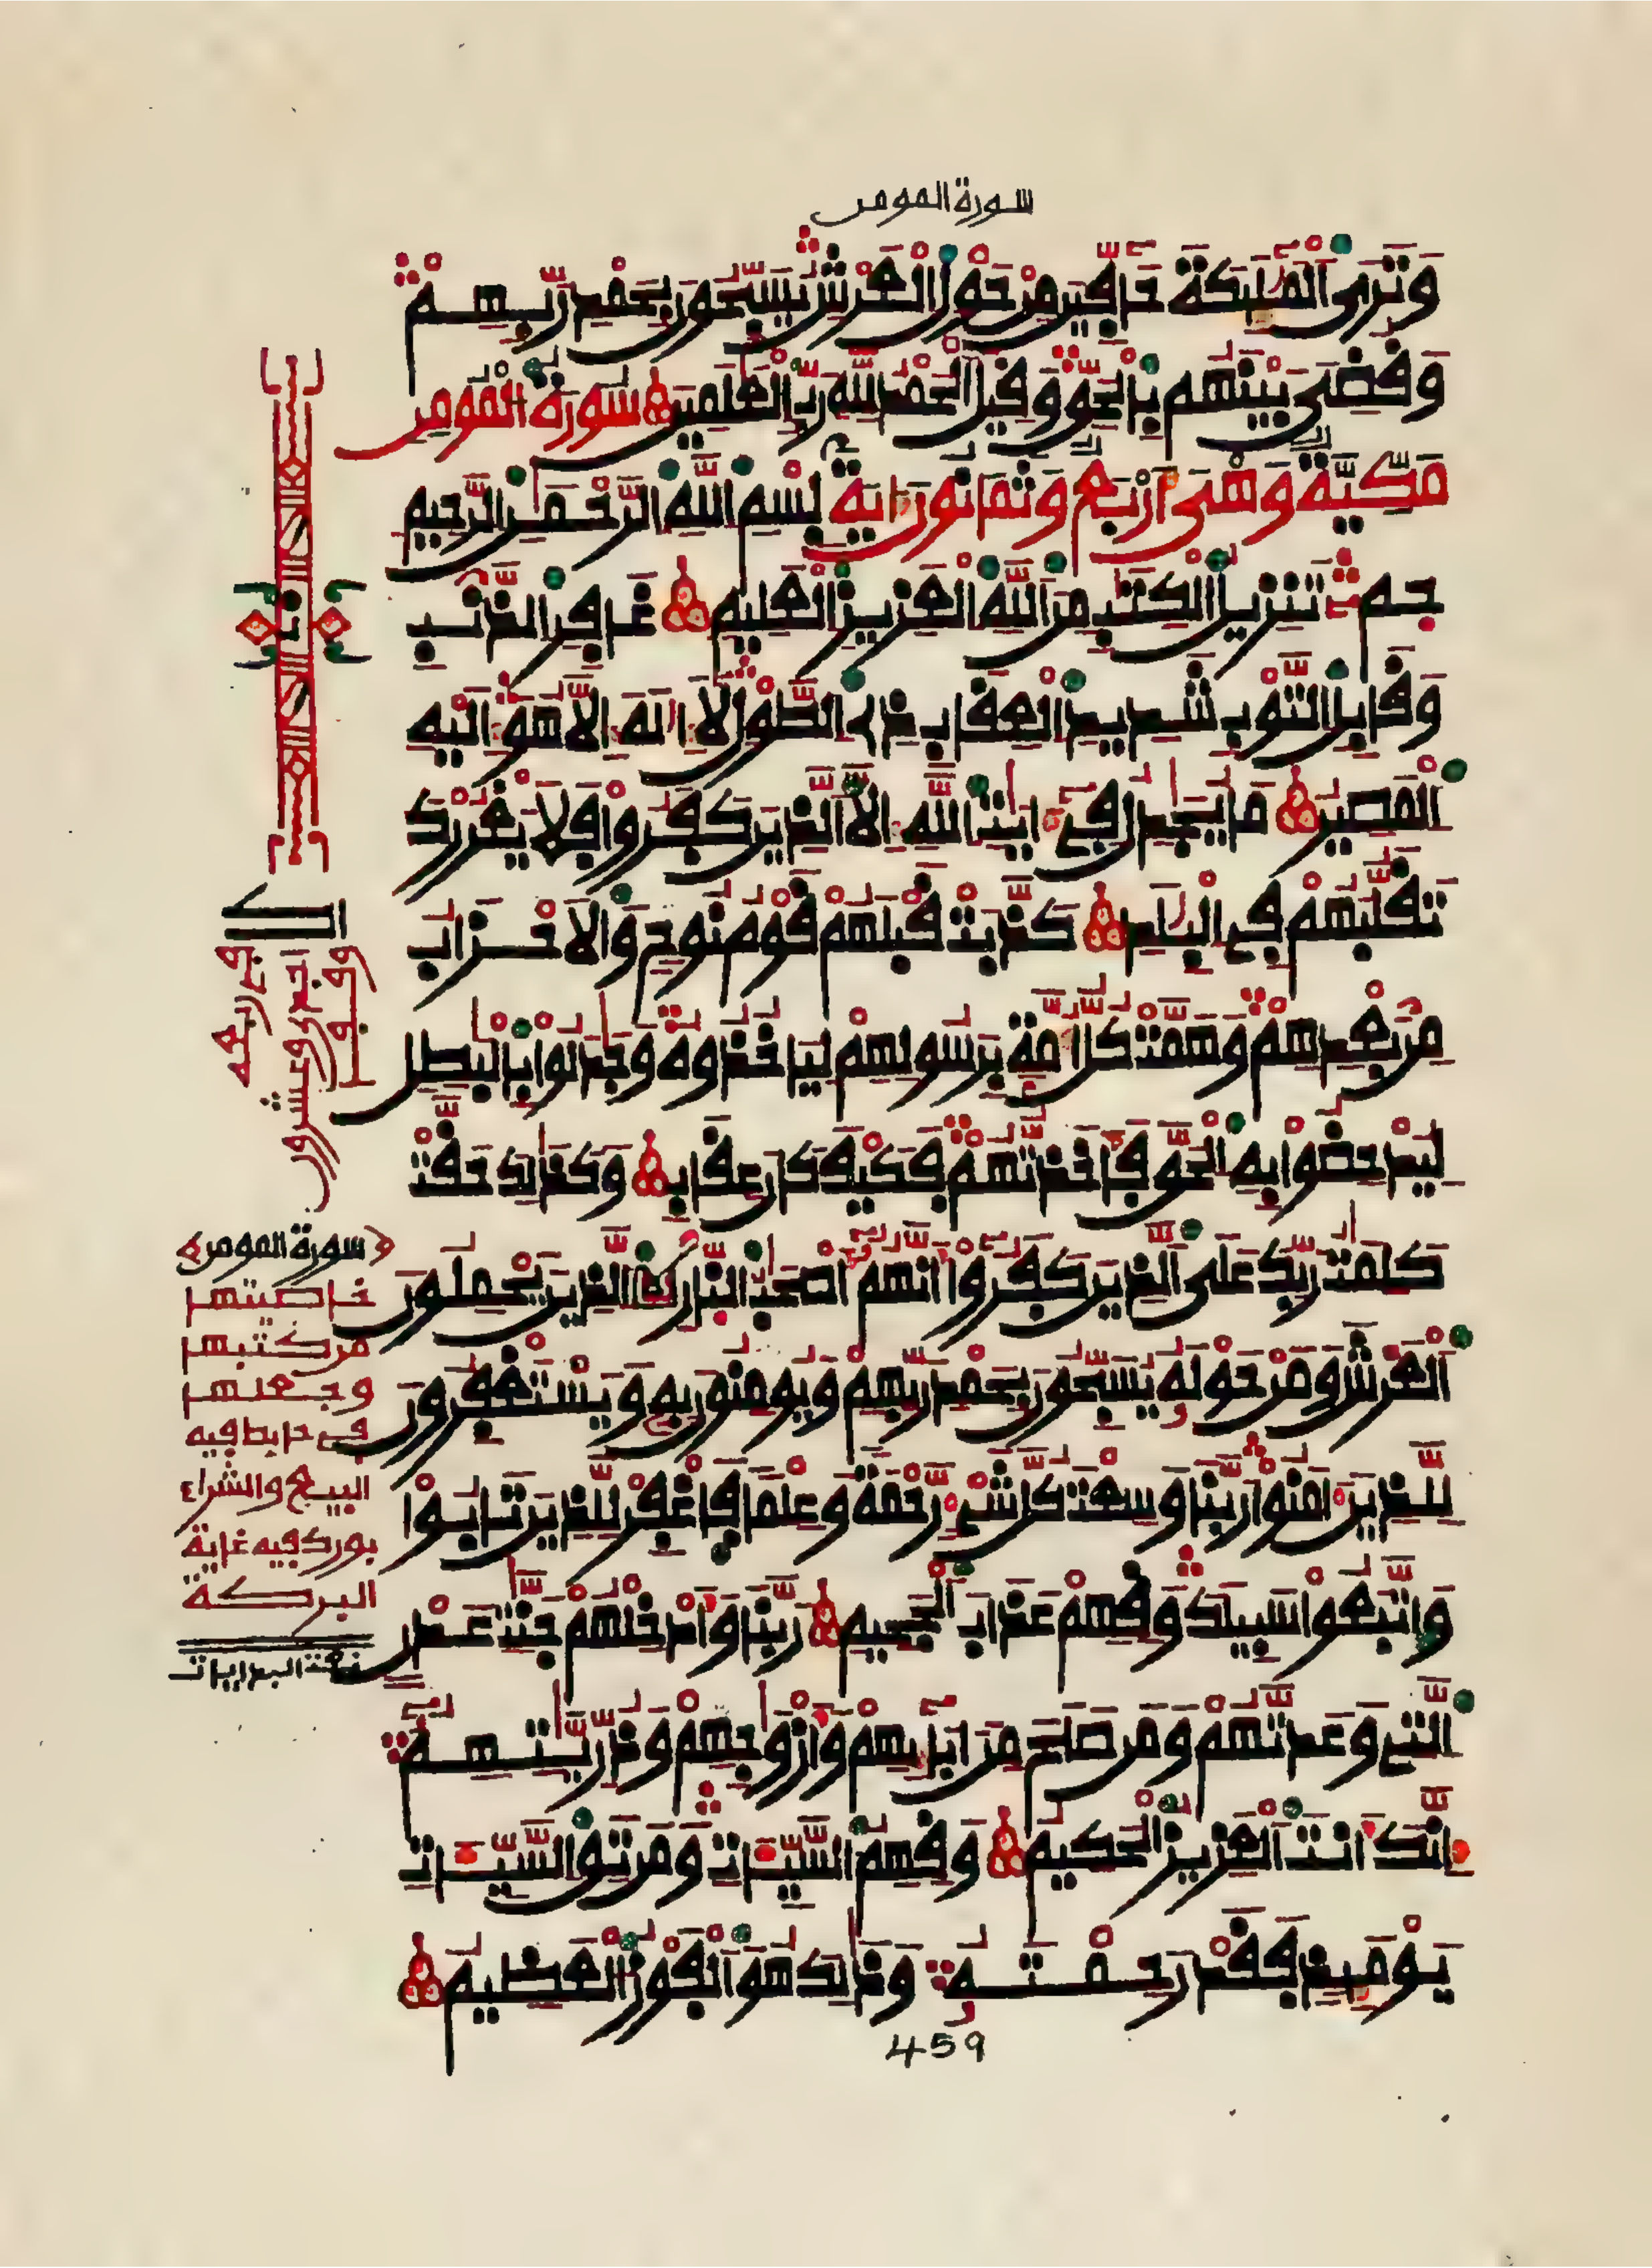 سورة المومن
وَتَرَى الْمَلَٰٓئِكَةَ حَآفِّينَ مِنْ حَوْلِ الْعَرْشِ يُسَبِّحُونَ بِحَمْدِ رَبِّهِمْ
وَقُضِىَ بَيْنَهُم بِالْحَقِّ وَقِيلَ الْحَمْدُ لِلَّهِ رَبِّ الْعَٰلَمِينَ سُورَةُ الْمُومِنِ
مَكِّيَّةٌ وَهْىَ أَرْبَعٌ وَثَمَانُونَ ءَايَةً بِسْمِ اللَّهِ الرَّحْمَٰنِ الرَّحِيمِ
حمٓ تَنزِيلُ الْكِتَٰبِ مِنَ اللَّهِ الْعَزِيزِ الْعَلِيمِ غَافِرِ الذَّنۢبِ
وَقَابِلِ التَّوْبِ شَدِيدِ الْعِقَابِ ذِى الطَّوْلِ لَآ إِلَٰهَ إِلَّا هُوَ إِلَيْهِ
الْمَصِيرُ مَا يُجَٰدِلُ فِىٓ ءَايَٰتِ اللَّهِ إِلَّا الَّذِينَ كَفَرُوا فَلَا يَغْرُرْكَ
تَقَلُّبُهُمْ فِى الْبِلَٰدِ كَذَّبَتْ قَبْلَهُمْ قَوْمُ نُوحٍ وَالْأَحْزَابُ
مِنۢ بَعْدِهِمْ وَهَمَّتْ كُلُّ أُمَّةٍۭ بِرَسُولِهِمْ لِيَاخُذُوهُ وَجَٰدَلُوا بِالْبَٰطِلِ
لِيُدْحِضُوا بِهِ الْحَقَّ فَأَخَذتُّهُمْ فَكَيْفَ كَانَ عِقَابِ وَكَذَٰلِكَ حَقَّتْ
كَلِمَٰتُ رَبِّكَ عَلَى الَّذِينَ كَفَرُوٓا أَنَّهُمُۥٓ أَصْحَٰبُ النَّارِ الَّذِينَ يَحْمِلُونَ
الْعَرْشَ وَمَنْ حَوْلَهُۥ يُسَبِّحُونَ بِحَمْدِ رَبِّهِمْ وَيُومِنُونَ بِهِۦ وَيَسْتَغْفِرُونَ
لِلَّذِينَ ءَامَنُوا رَبَّنَا وَسِعْتَ كُلَّ شَىْءٍ رَّحْمَةً وَعِلْمًا فَاغْفِرْ لِلَّذِينَ تَابُوا
وَاتَّبَعُوا سَبِيلَكَ وَقِهِمْ عَذَابَ الْجَحِيمِ رَبَّنَا وَأَدْخِلْهُمْ جَنَّٰتِ عَدْنٍ
الَّتِى وَعَدتَّهُمْ وَمَن صَلَحَ مِنْ ءَابَآئِهِمْ وَأَزْوَٰجِهِمْ وَذُرِّيَّٰتِهِمُۥٓ
إِنَّكَ أَنتَ الْعَزِيزُ الْحَكِيمُ وَقِهِمُ السَّيِّـَٔاتِ وَمَن تَقِ السَّيِّـَٔاتِ
يَوْمَئِذٍ فَقَدْ رَحِمْتَهُۥ وَذَٰلِكَ هُوَ الْفَوْزُ الْعَظِيمُ
سورة المومن
خاصيتها
من كتبها
وجعلها
في حايط فيه
البيع والشراء
بورك فيه غاية
البركة
459